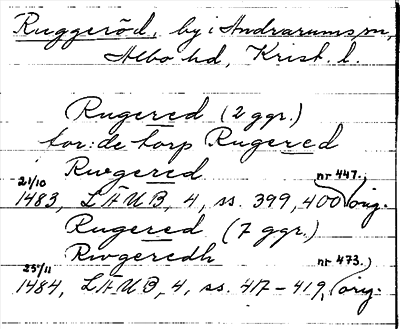 Ruggeröd, by i Andrarums sn,
Albo hd, Krist. l.
Rugered (2 ggr.)
tor: de torp Rugered
Rwgered
21/10 1483, LÄUB, 4, ss. 399, 400 (nr 447. orig.
Rugered (7 ggr.)
Rwgeredh
25/11 1484, LÄUB, 4, ss. 417-419, (nr 473.) orig.